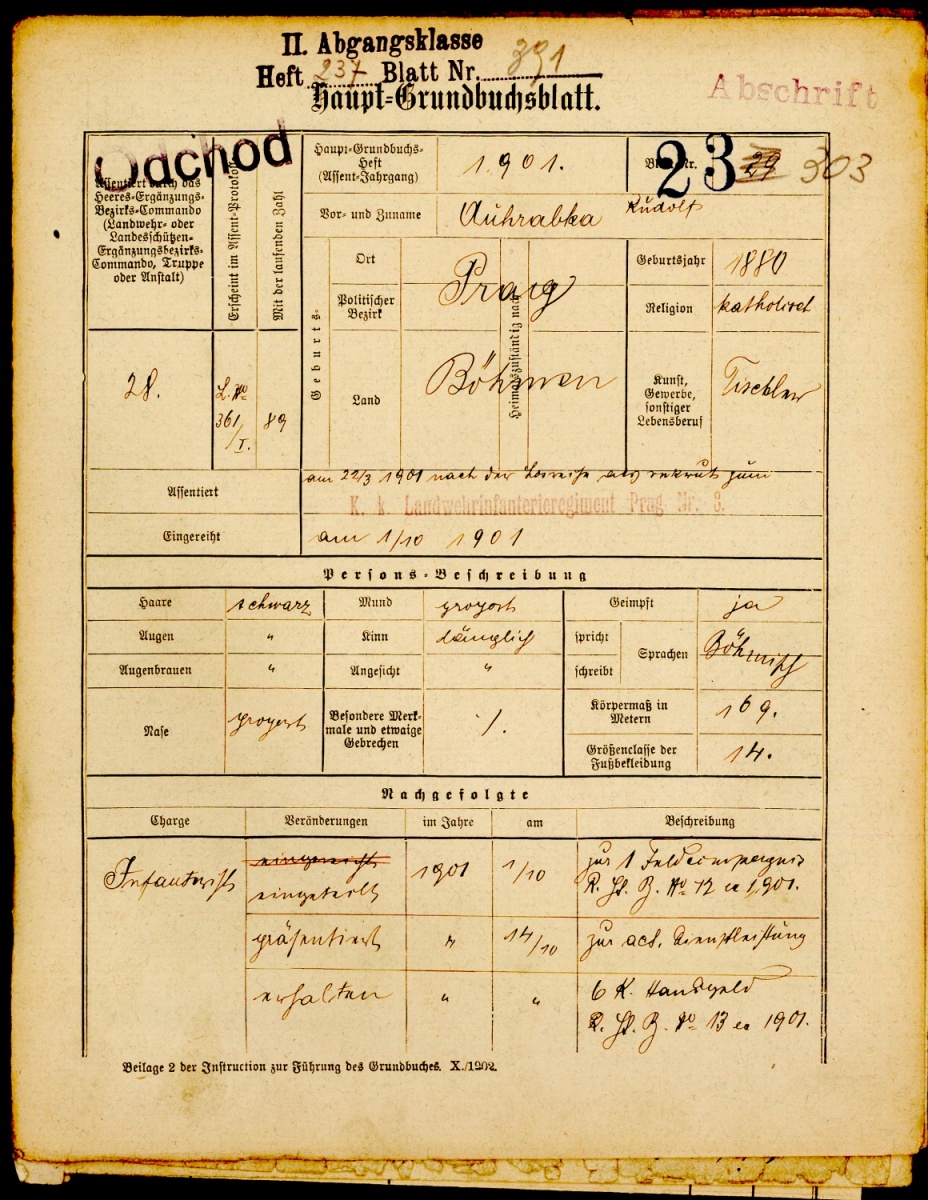 II. Abgangsklasse
Heft 237 Blatt Nr. 391
Haupt-Grundbuchsblatt.
Abschrift
Odchod
Assentiert durch das Heeres-Ergänzungs-Bezirks-Commando (Landwehr- oder Landesschützen-Ergänzungsbezirks-Commando, Truppe oder Anstalt)
Erscheint im Assent-Protokoll
Mit der laufenden Zahl
Haupt-Grundbuchs-Heft (Assent-Jahrgang)
1901.
23
29
303
Vor- und Zuname
Auhrabka Rudolf
Geburts-
Ort
Politischer Bezirk
Land
Prag
Böhmen
Heimatszuständig nach
Geburtsjahr
1880
Religion
katholisch
Kunst, Gewerbe, sonstiger Lebensberuf
Tischler
28.
L. No
361/I.
89
Assentiert
am 22/3 1901 nach der Losreihe als rekrut zum
K. k. Landwehrinfanterieregiment Prag Nr. 8.
Eingereiht
am 1/10 1901
Persons-Beschreibung
Haare
schwarz
Mund
proport
Geimpft
ja
Augen
"
Kinn
länglich
spricht
schreibt
Sprachen
Böhmisch
Augenbrauen
"
Angesicht
"
Nase
proport
Besondere Merkmale und etwaige Gebrechen
./.
Körpermaß in Metern
169.
Größenclasse der Fußbekleidung
14.
Nachgefolgte
Charge
Veränderungen
im Jahre
am
Beschreibung
Infanterist
eingereiht
eingeteilt
1901
1/10
zur 1 Feldcompagnie
No 12 ex 1901.
präsentiert
"
14/10
zur act. Dienstleistung
erhalten
"
"
6 K. Handgeld
No 13 ex 1901.
Beilage 2 der Instruction zur Führung des Grundbuches. X./1902.